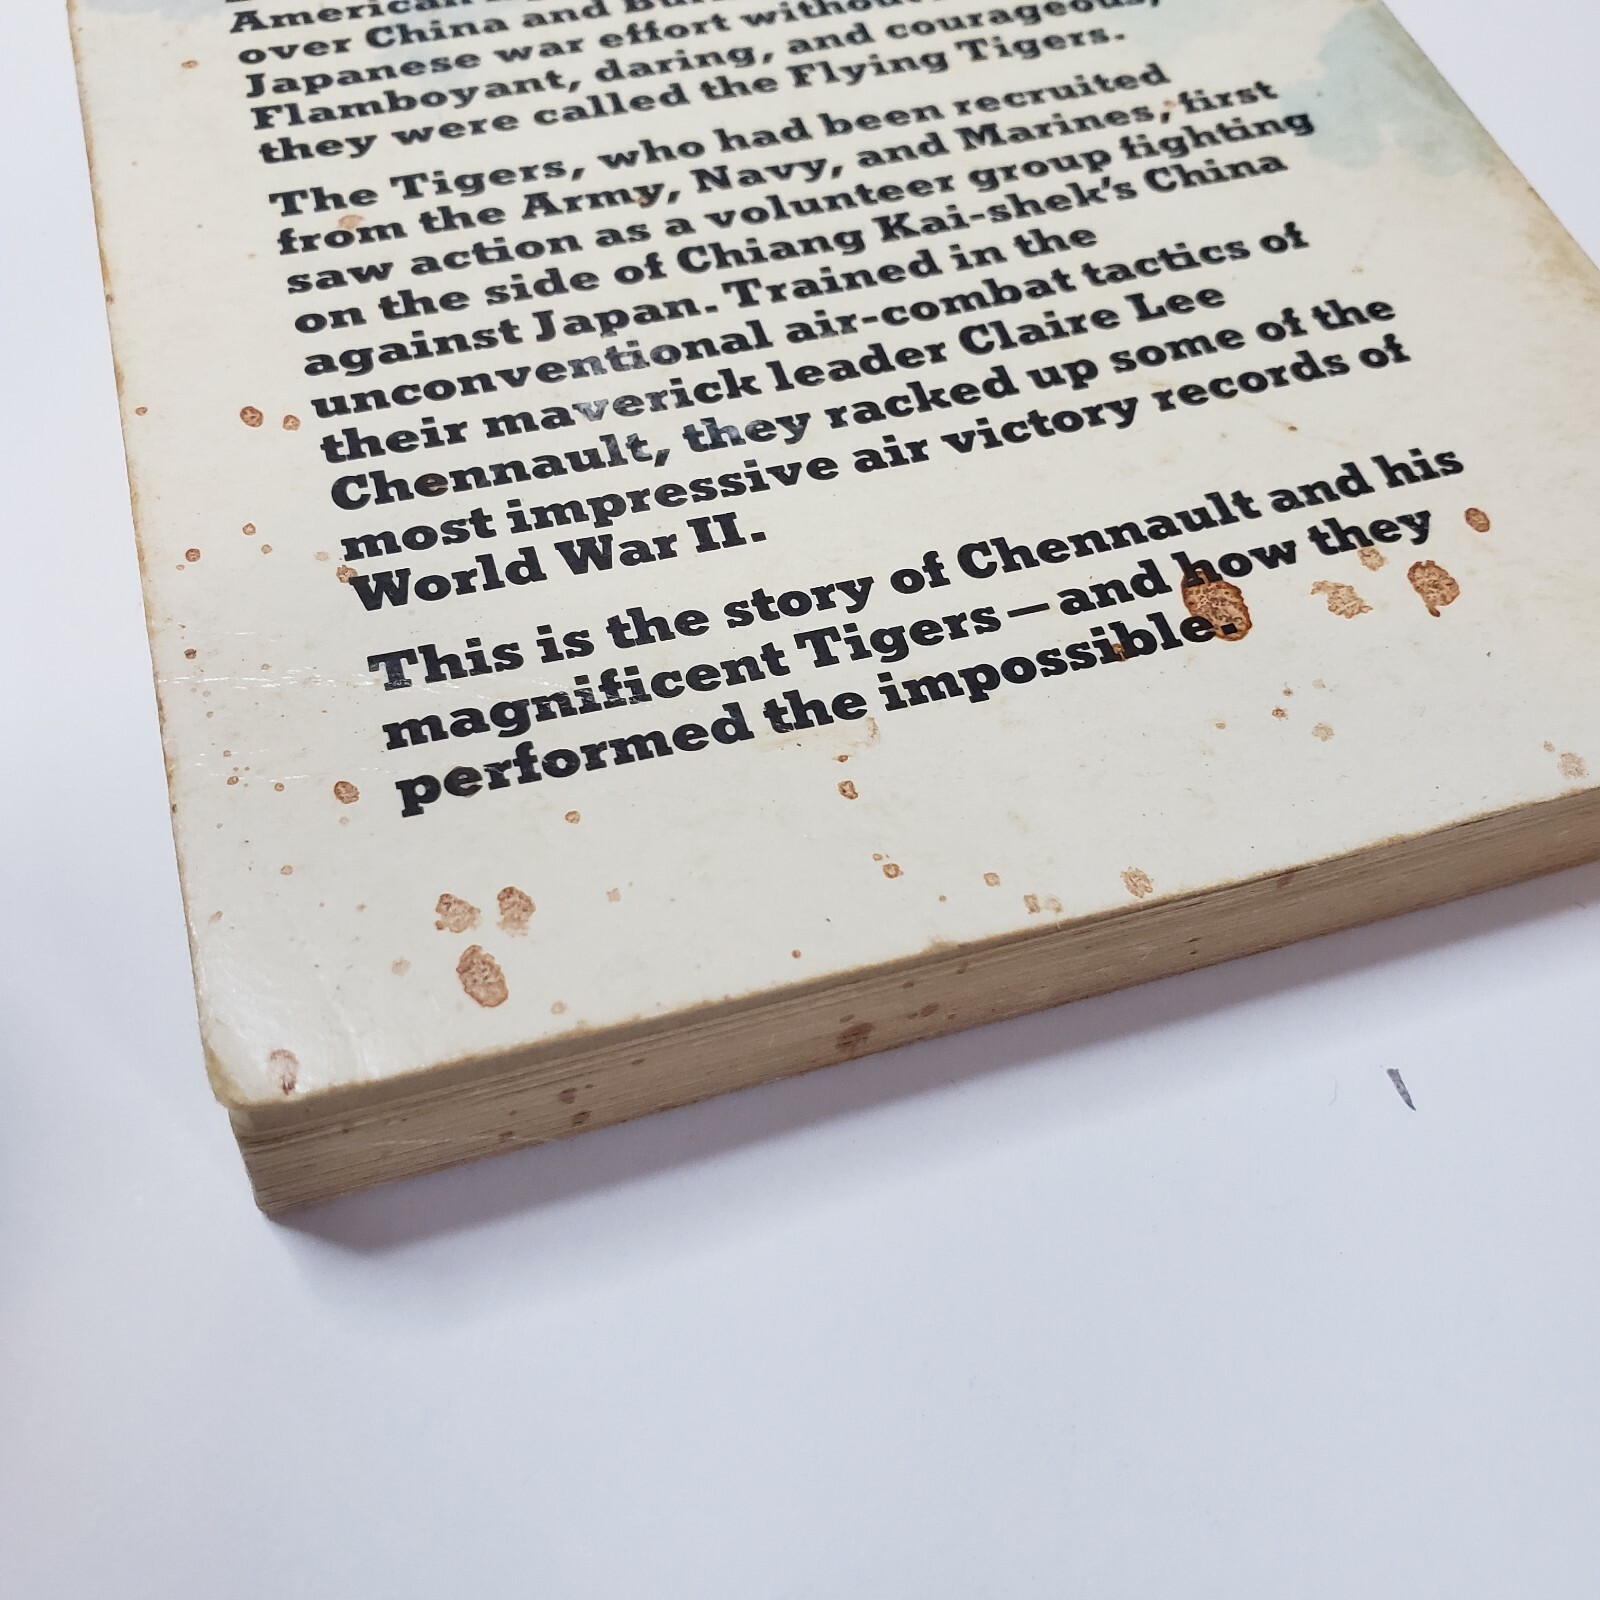 American
over China and
Japanese war effort without
Flamboyant, daring, and courageous,
they were called the Flying Tigers.
The Tigers, who had been recruited
from the Army, Navy, and Marines, first
saw action as a volunteer group fighting
on the side of Chiang Kai-shek's China
against Japan. Trained in the
unconventional air-combat tactics of
their maverick leader Claire Lee
Chennault, they racked up some of the
most impressive air victory records of
World War II.
This is the story of Chennault and his
magnificent Tigers—and how they
performed the impossible.